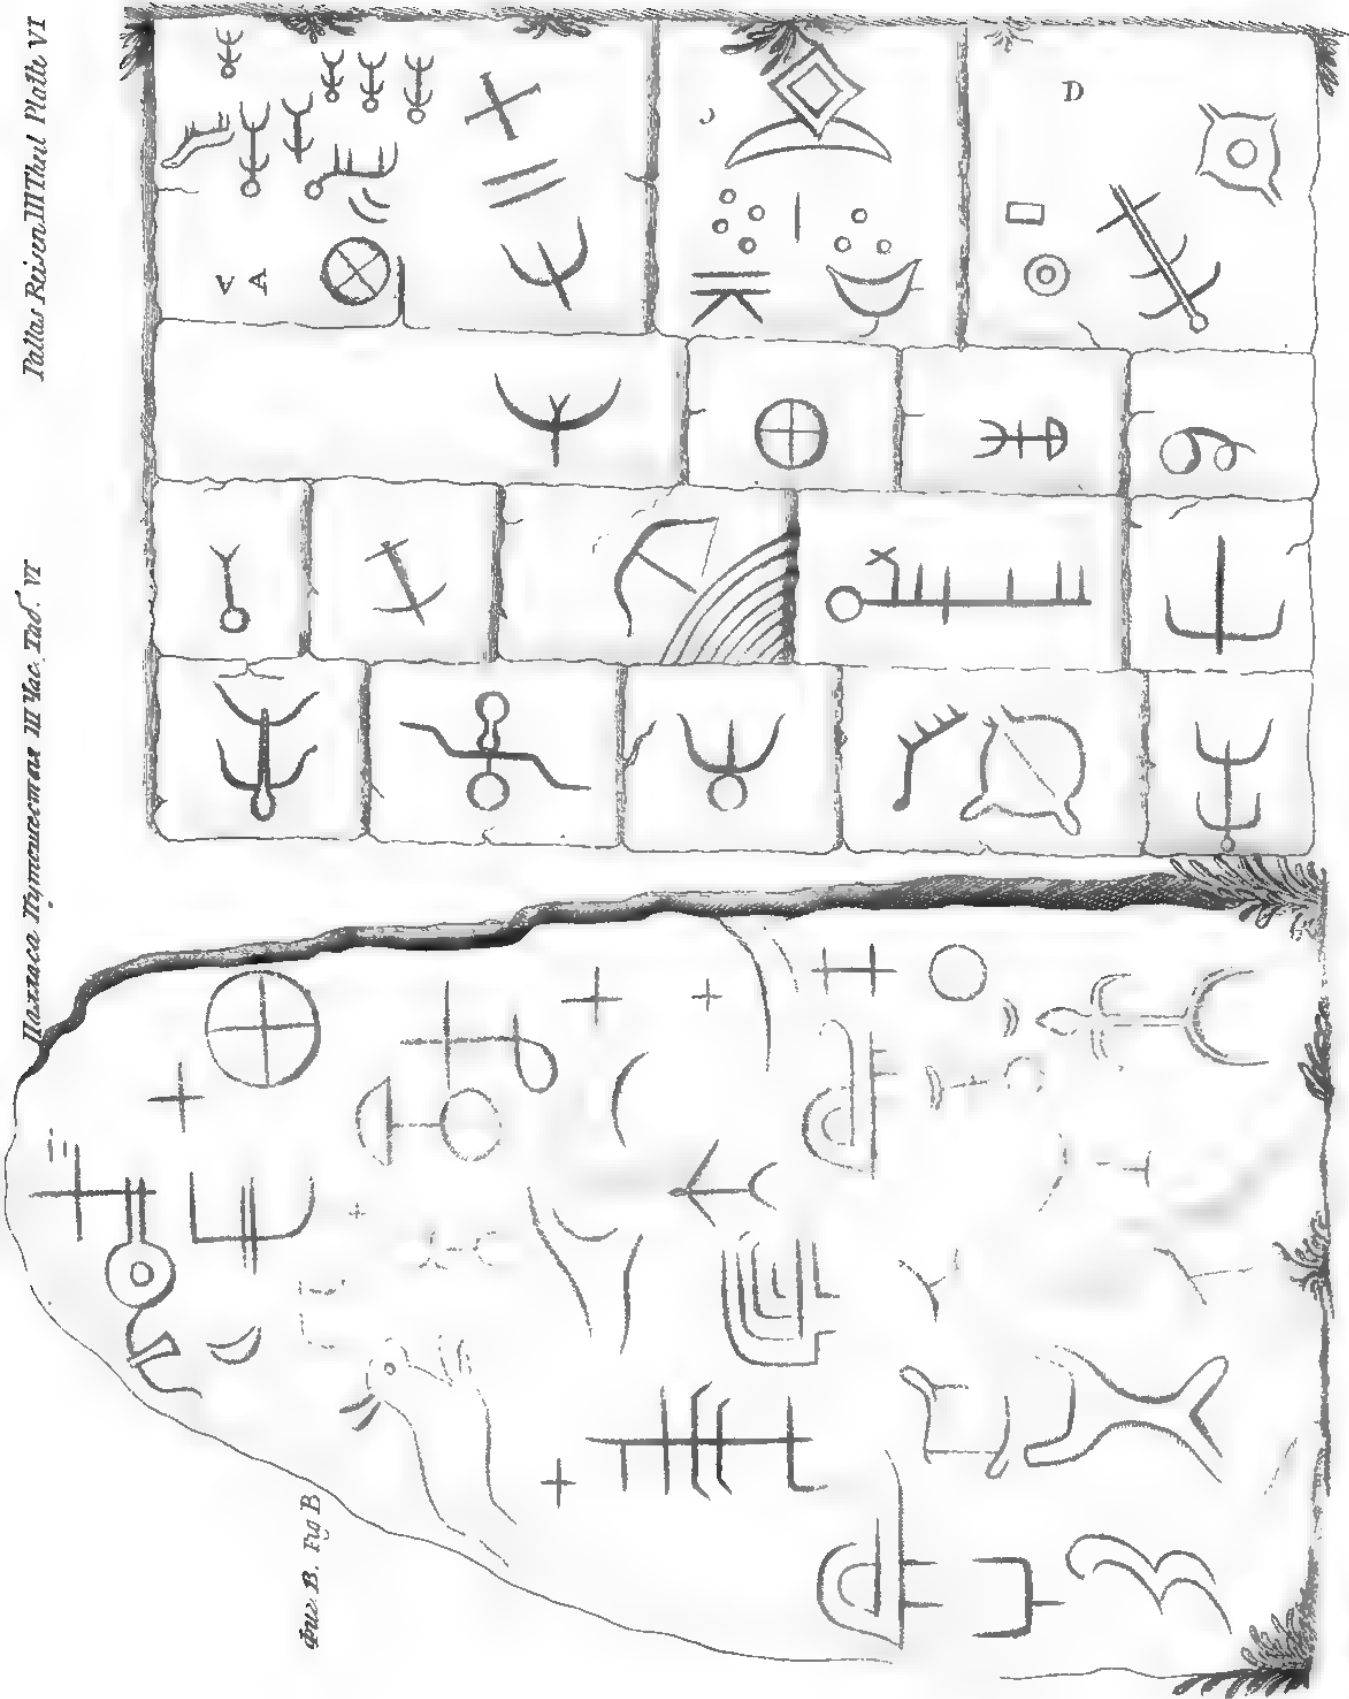 Pallas Reisen III Theil Platte VI
Палласа Путешествія III Час. Таб. VI
D
V A
Фиг. B. Fig B